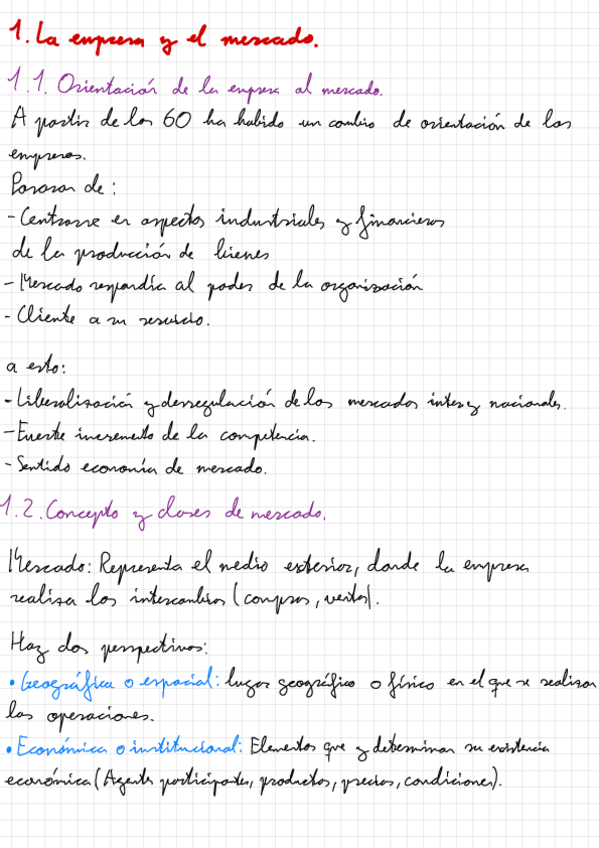 1. La empresa y el mercado.
1.1. Orientación de la empresa al mercado.
A partir de los 60 ha habido un cambio de orientación de las
empresas.
Pasaron de:
- Centrarse en aspectos industriales y financieros
de la producción de bienes
- Mercado respondía al poder de la organización
- Cliente a su servicio.
a esto:
- Liberalización y desregulación de los mercados inter y nacionales.
- Fuerte incremento de la competencia.
- Sentido economía de mercado.
1.2. Concepto y clases de mercado.
Mercado: Representa el medio exterior, donde la empresa
realiza los intercambios (compras, ventas).
Hay dos perspectivas:
• Geográfica o espacial: lugar geográfico o físico en el que se realizan
las operaciones.
• Económica o institucional: Elementos que y determinan su existencia
económica (Agentes participantes, productos, precios, condiciones).